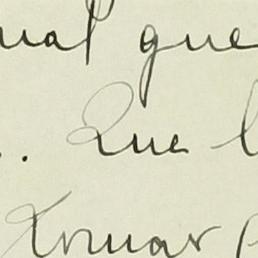 ual que
. Que l
Tomar